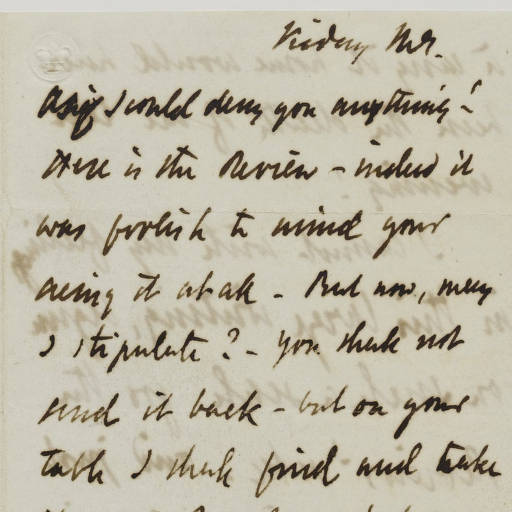 Friday Mg.
As if I could deny you anything!
Here is the Review – indeed it
was foolish to mind your
seeing it at all – But now, may
I stipulate? – You shall not
send it back – but on your
table I shall find and take